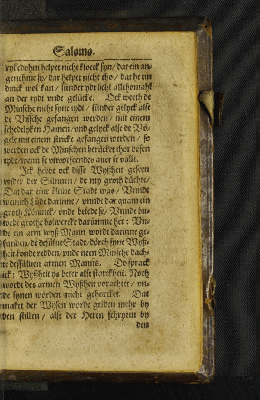 Salomo.
tydt doen helpet nicht kloeck syn / dat ein an-
genehme sy / dar helpet nicht tho / dat he ein
dinck wol kan / sünder ydt licht allthomahl
an der tydt vnde gelücke. Ock weeth de
Minsche nicht syne tydt / sünder gelyck alse
de Vissche gefangen werden / mit einem
schedelyken Hamen / vnd gelyck alse de Vö-
gele mit einem stricke gefangen werden / so
werden ock de Minschen berücket thor bösen
tydt / wenn se vnvorsehendes auer se vallt.
Ick hebbe ock düsse Wyßheit geseen
vnder der Sünnen / de my groth düchte /
Dat dar eine kleine Stadt was / Vnnde
weinich Lüde darinne / vnnde dar quam ein
groth Köninck / vnde belede se / Vnnde bu-
wede grothe bolwercke darümme her: Vn-
de ein arm wyß Mann wordt darinne ge-
funden / de desülue Stadt dörch syne Wyß-
heit konde redden / vnde neen Minsche dach-
te dessüluen armen Manns. Do sprack
ick: Wyßheit ys beter alse starckheit. Noch
wordt des armen Wyßheit vorachtet / vn-
de synen worden nicht gehorcket. Dat
maket der Wysen worde gelden mehr by
den stillen / alse der Heren schryent by
den